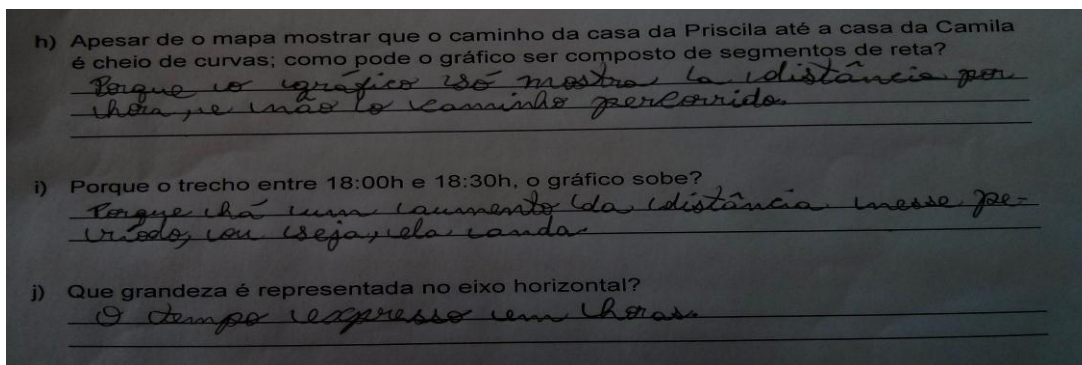 h) Apesar de o mapa mostrar que o caminho da casa da Priscila até a casa da Camila
é cheio de curvas; como pode o gráfico ser composto de segmentos de reta?
Porque o gráfico só mostra a distância por
hora, e não o caminho percorrido.
i) Porque o trecho entre 18:00h e 18:30h, o gráfico sobe?
Porque há um aumento da distância nesse pe-
ríodo, ou seja, ela anda.
j) Que grandeza é representada no eixo horizontal?
O tempo expresso em horas.